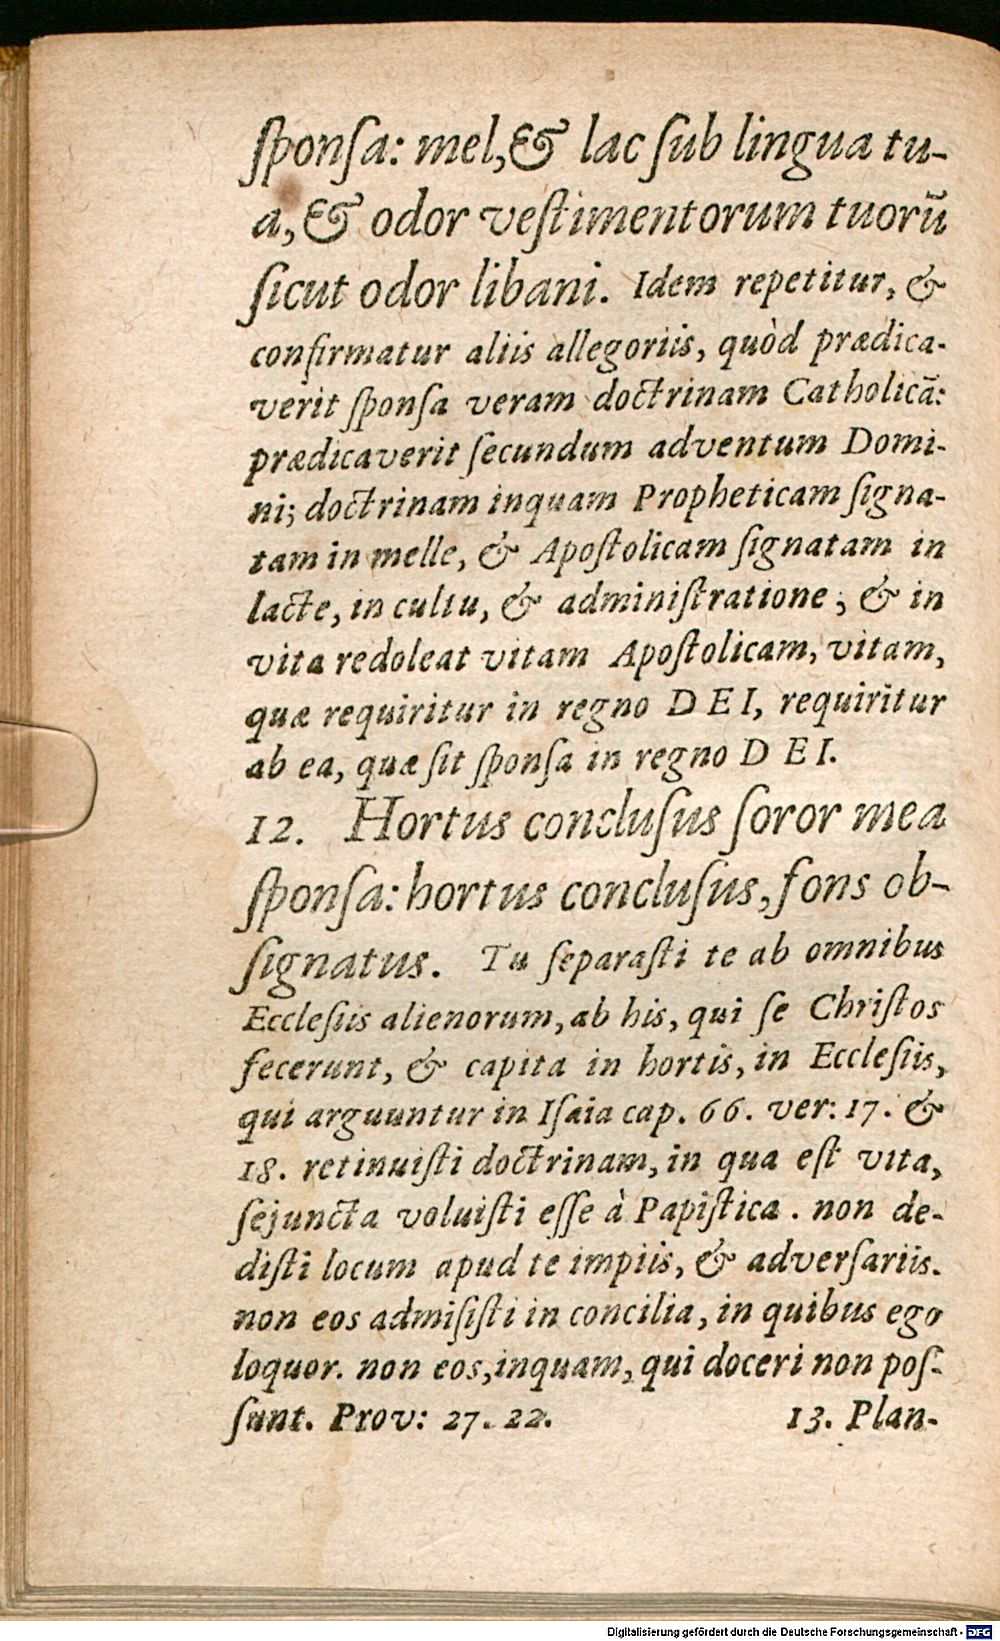 ſponſa: mel,& lac ſub lingua tu-
a,& odor veſtimentorum tuorū
ſicut odor libani. Idem repetitur, &
confirmatur aliis allegoriis, quòd prædica-
verit ſponſa veram doctrinam Catholicā:
prædicaverit ſecundum adventum Domi-
ni; doctrinam inquam Propheticam ſigna-
tam in melle, & Apoſtolicam ſignatam in
lacte, in cultu, & adminiſtratione; & in
vita redoleat vitam Apoſtolicam, vitam,
quæ requiritur in regno DEI, requiritur
ab ea, quæ ſit ſponſa in regno DEI.
12. Hortus concluſus ſoror mea
ſponſa: hortus concluſus, fons ob-
ſignatus. Tu ſeparaſti te ab omnibus
Eccleſiis alienorum, ab his, qui ſe Chriſtos
fecerunt, & capita in hortis, in Eccleſiis,
qui arguuntur in Iſaia cap. 66. ver: 17. &
18. retinuiſti doctrinam, in qua eſt vita,
ſejuncta voluiſti eſſe à Papiſtica. non de-
diſti locum apud te impiis, & adverſariis.
non eos admiſiſti in concilia, in quibus ego
loquor. non eos, inquam, qui doceri non poſ-
ſunt. Prov: 27. 22. 13. Plan-
Digitalisierung gefördert durch die Deutsche Forschungsgemeinschaft - DFG